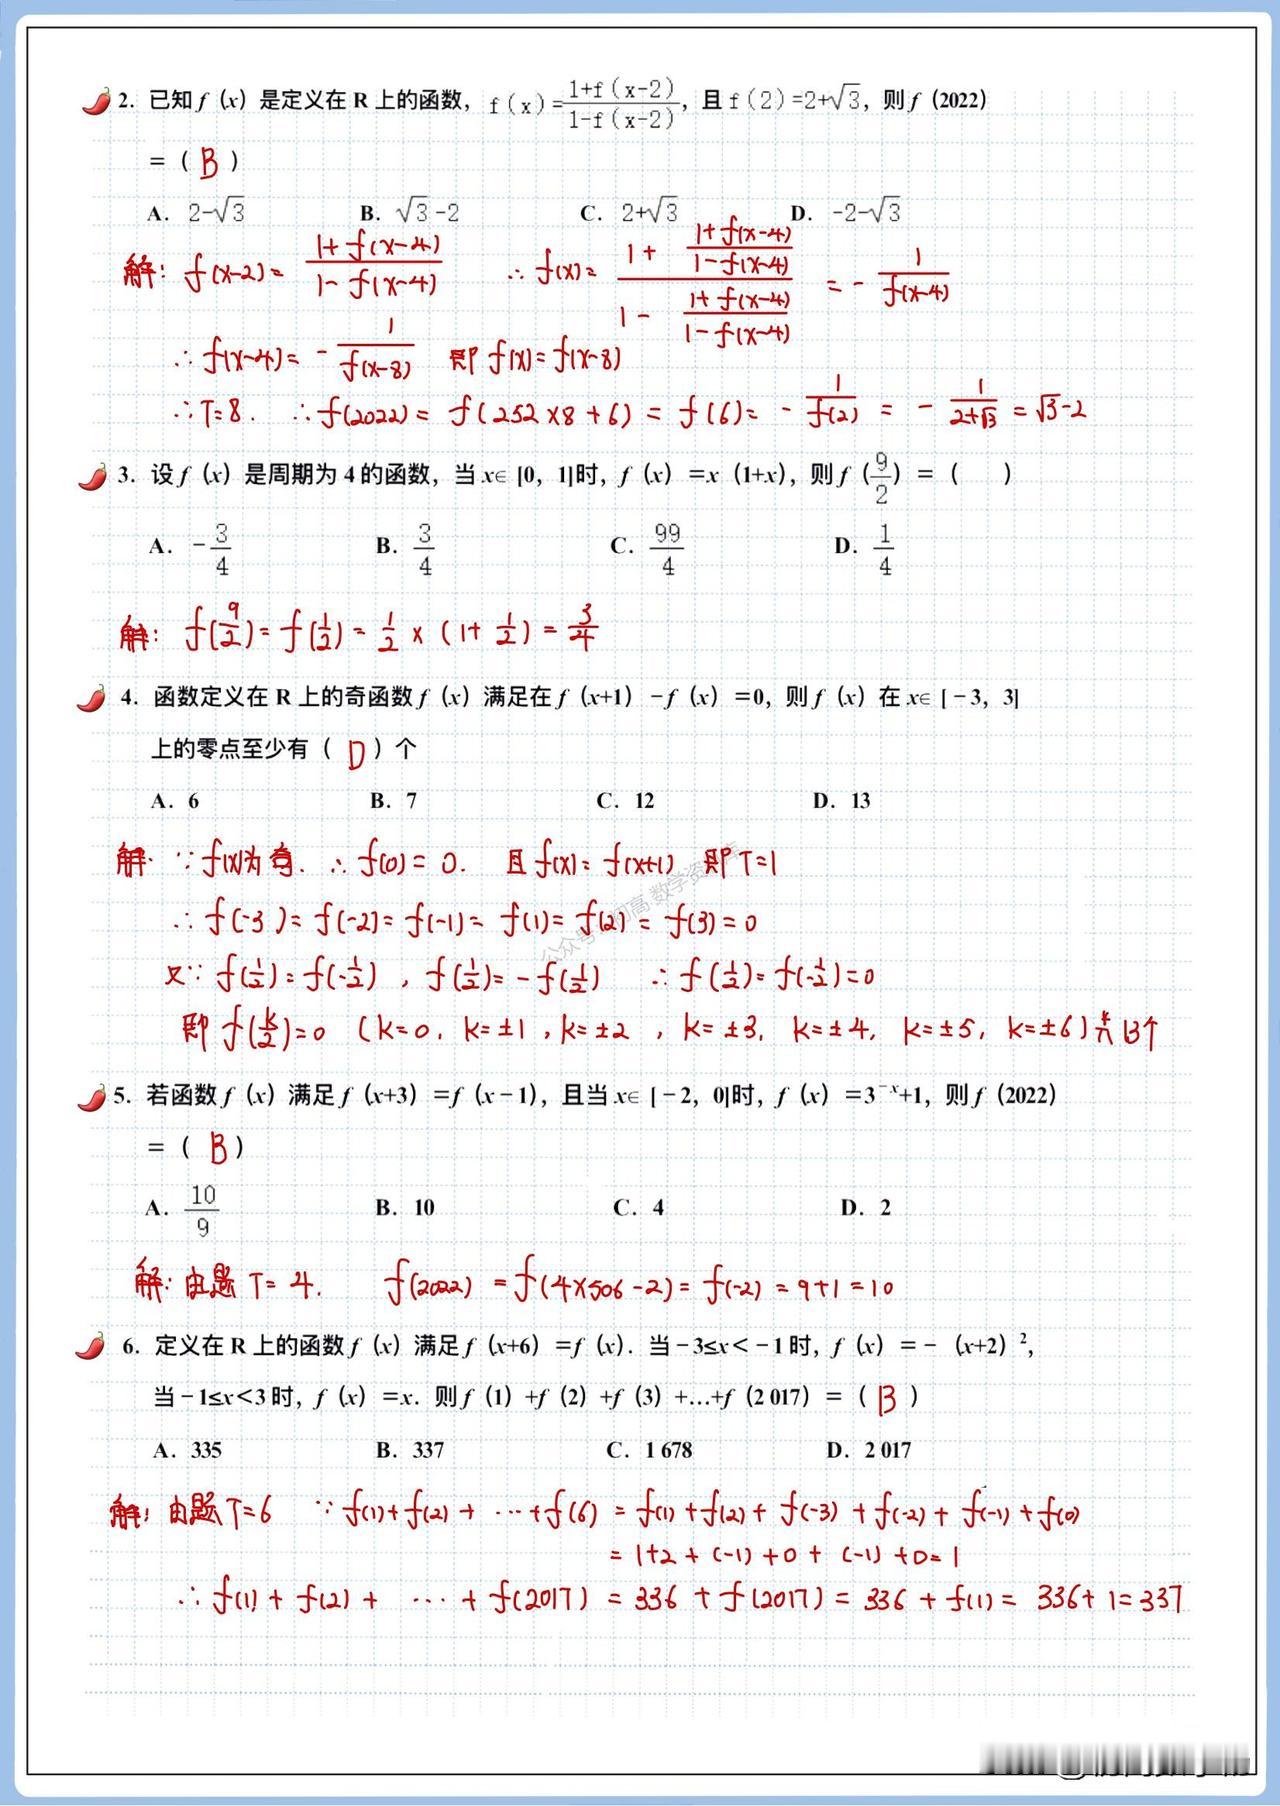 2. 已知 f（x）是定义在 R 上的函数，f(x)=\frac{1+f(x-2)}{1-f(x-2)}，且 f(2)=2+√3，则 f（2022）
=（ B ）
A. 2-√3 B. √3-2 C. 2+√3 D. -2-√3
解: f(x-2)= \frac{1+f(x-4)}{1-f(x-4)} ∴ f(x)= \frac{1+\frac{1+f(x-4)}{1-f(x-4)}}{1-\frac{1+f(x-4)}{1-f(x-4)}} = -\frac{1}{f(x-4)}
∴ f(x-4)= -\frac{1}{f(x-8)} 即 f(x)= f(x-8)
∴T=8. ∴ f(2022)= f(252×8+6)= f(6)= -\frac{1}{f(2)} = -\frac{1}{2+√3} = √3-2
3. 设 f（x）是周期为 4 的函数，当 x∈[0，1]时，f（x）=x（1+x），则 f（\frac{9}{2}）=（ ）
A. -\frac{3}{4} B. \frac{3}{4} C. \frac{99}{4} D. \frac{1}{4}
解: f(\frac{9}{2})= f(\frac{1}{2})= \frac{1}{2}×(1+\frac{1}{2})= \frac{3}{4}
4. 函数定义在 R 上的奇函数 f（x）满足在 f（x+1）-f（x）=0，则 f（x）在 x∈[-3，3]
上的零点至少有（ D ）个
A. 6 B. 7 C. 12 D. 13
解. ∵ f(x)为奇. ∴ f(0)= 0. 且 f(x)= f(x+1) 即 T=1
∴ f(-3)= f(-2)= f(-1)= f(1)= f(2)= f(3)=0
又∵ f(\frac{1}{2})= f(-\frac{1}{2}), f(\frac{1}{2})= -f(\frac{1}{2}) ∴ f(\frac{1}{2})= f(-\frac{1}{2})=0
即 f(\frac{k}{2})=0 (k=0, k=±1, k=±2, k=±3, k=±4, k=±5, k=±6)共13个
5. 若函数 f（x）满足 f（x+3）=f（x-1），且当 x∈[-2，0]时，f（x）=3^{-x}+1，则 f（2022）
=（ B ）
A. \frac{10}{9} B. 10 C. 4 D. 2
解: 由题 T=4. f(2022) = f(4×506-2)= f(-2)= 9+1=10
6. 定义在 R 上的函数 f（x）满足 f（x+6）=f（x）. 当-3≤x<-1 时，f（x）=-（x+2）²，
当-1≤x<3 时，f（x）=x. 则 f（1）+f（2）+f（3）+…+f（2 017）=（ B ）
A. 335 B. 337 C. 1 678 D. 2 017
解: 由题T=6 ∵ f(1)+f(2)+ ···+f(6) = f(1)+f(2)+ f(-3)+f(-2)+ f(-1)+f(0)
= 1+2+(-1)+0+(-1)+0=1
∴ f(1)+ f(2)+ ··· + f(2017) = 336 + f(2017)= 336+ f(1)= 336+1=337